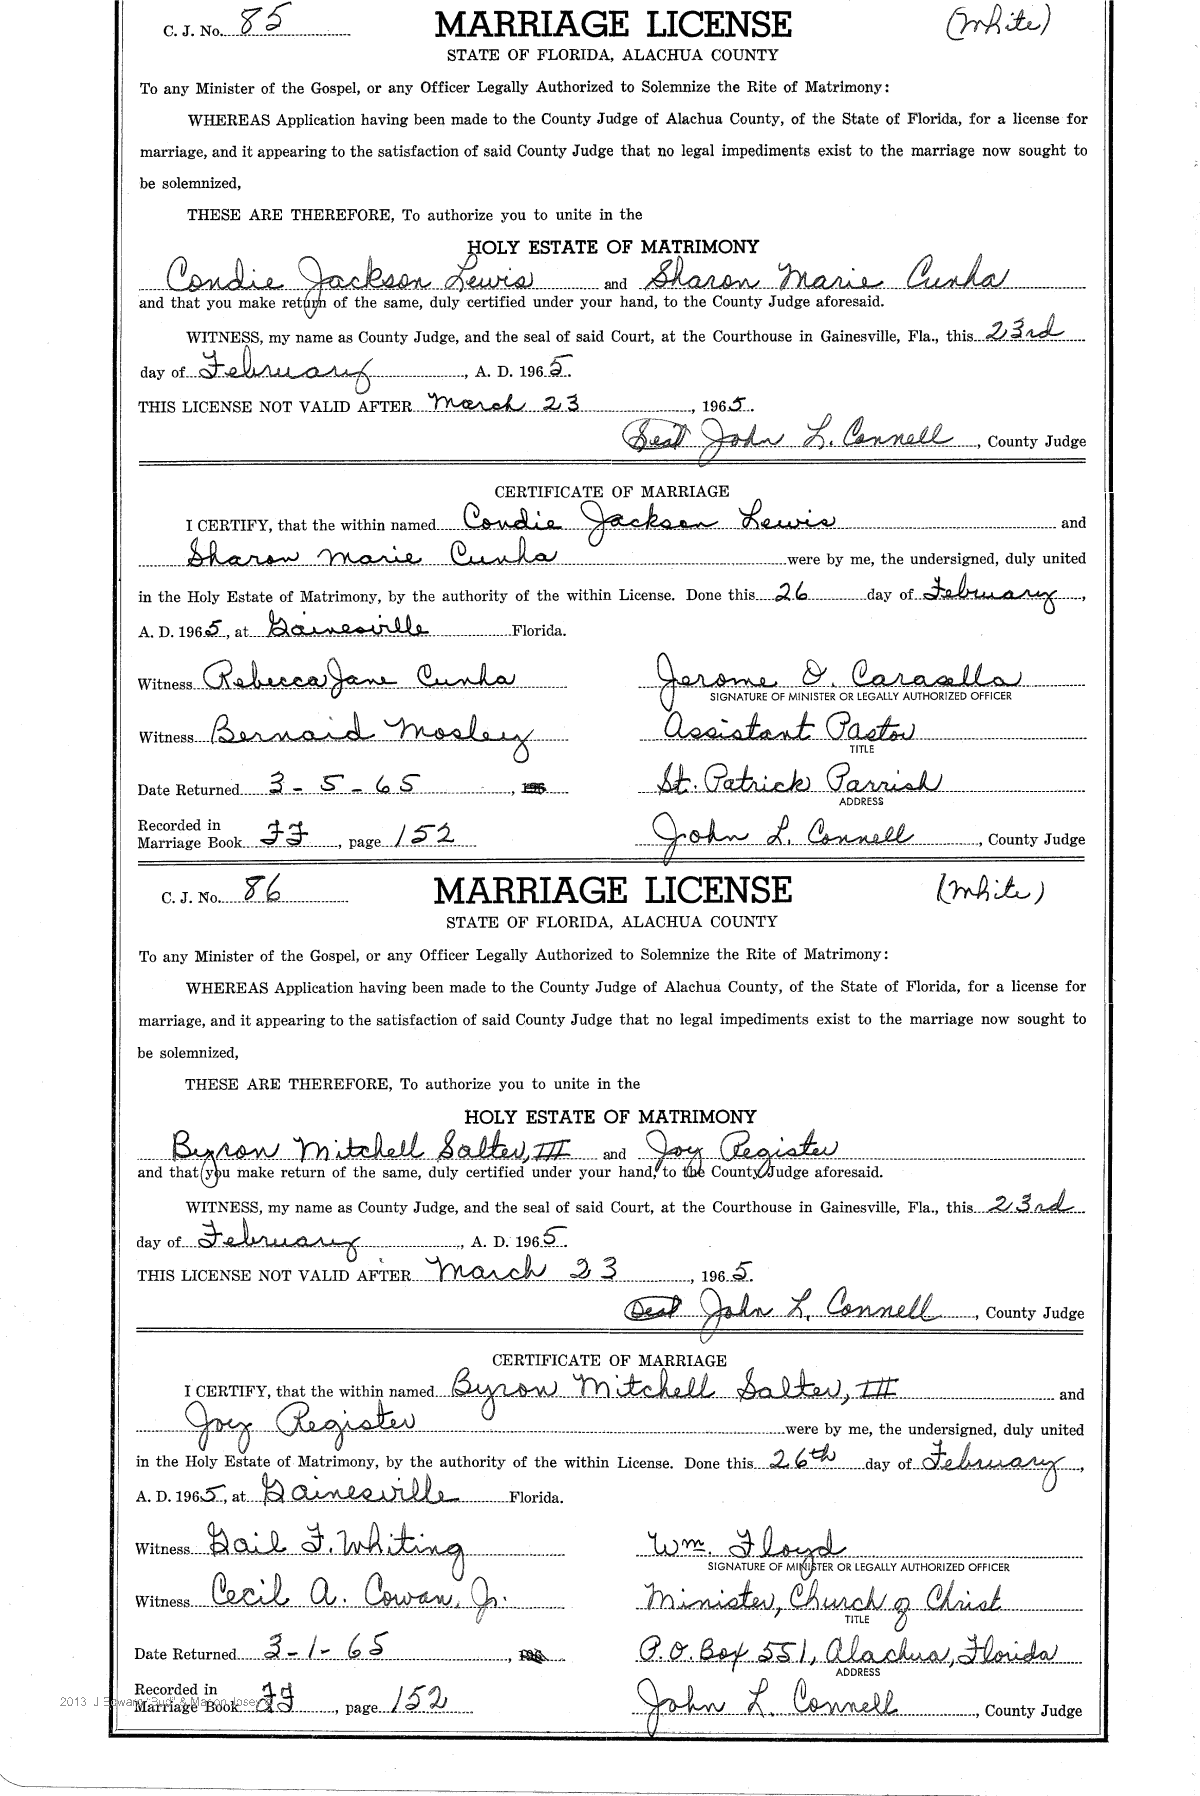 C. J. No. 85 MARRIAGE LICENSE (White)
STATE OF FLORIDA, ALACHUA COUNTY
To any Minister of the Gospel, or any Officer Legally Authorized to Solemnize the Rite of Matrimony:
WHEREAS Application having been made to the County Judge of Alachua County, of the State of Florida, for a license for
marriage, and it appearing to the satisfaction of said County Judge that no legal impediments exist to the marriage now sought to
be solemnized,
THESE ARE THEREFORE, To authorize you to unite in the
HOLY ESTATE OF MATRIMONY
Condie Jackson Lewis and Sharon Marie Cunha
and that you make return of the same, duly certified under your hand, to the County Judge aforesaid.
WITNESS, my name as County Judge, and the seal of said Court, at the Courthouse in Gainesville, Fla., this 23rd
day of February, A. D. 1965.
THIS LICENSE NOT VALID AFTER March 23, 1965.
Seal John L. Connell, County Judge
CERTIFICATE OF MARRIAGE
I CERTIFY, that the within named Condie Jackson Lewis and
Sharon Marie Cunha were by me, the undersigned, duly united
in the Holy Estate of Matrimony, by the authority of the within License. Done this 26 day of February,
A. D. 1965, at Gainesville Florida.
Witness Rebecca Jane Cunha Jerome O. Carosella
SIGNATURE OF MINISTER OR LEGALLY AUTHORIZED OFFICER
Witness Bernaid Mosley Assistant Pastor
TITLE
Date Returned 3-5-65, 196 St. Patrick Parrish
ADDRESS
Recorded in
Marriage Book FF, page 152 John L. Connell, County Judge
C. J. No. 86 MARRIAGE LICENSE (White)
STATE OF FLORIDA, ALACHUA COUNTY
To any Minister of the Gospel, or any Officer Legally Authorized to Solemnize the Rite of Matrimony:
WHEREAS Application having been made to the County Judge of Alachua County, of the State of Florida, for a license for
marriage, and it appearing to the satisfaction of said County Judge that no legal impediments exist to the marriage now sought to
be solemnized,
THESE ARE THEREFORE, To authorize you to unite in the
HOLY ESTATE OF MATRIMONY
Byron Mitchell Salter, III and Joy Register
and that you make return of the same, duly certified under your hand, to the County Judge aforesaid.
WITNESS, my name as County Judge, and the seal of said Court, at the Courthouse in Gainesville, Fla., this 23rd
day of February, A. D. 1965.
THIS LICENSE NOT VALID AFTER March 23, 1965.
Seal John L. Connell, County Judge
CERTIFICATE OF MARRIAGE
I CERTIFY, that the within named Byron Mitchell Salter, III and
Joy Register were by me, the undersigned, duly united
in the Holy Estate of Matrimony, by the authority of the within License. Done this 26th day of February,
A. D. 1965, at Gainesville Florida.
Witness Gail F. Whiting Wm. Floyd
SIGNATURE OF MINISTER OR LEGALLY AUTHORIZED OFFICER
Witness Cecil A. Cowan, Jr. Minister, Church of Christ
TITLE
Date Returned 3-1-65, P.O. Box 551, Alachua, Florida
ADDRESS
Recorded in
2013 J Edward "Bud" & Mason Josey
Marriage Book FF, page 152 John L. Connell, County Judge